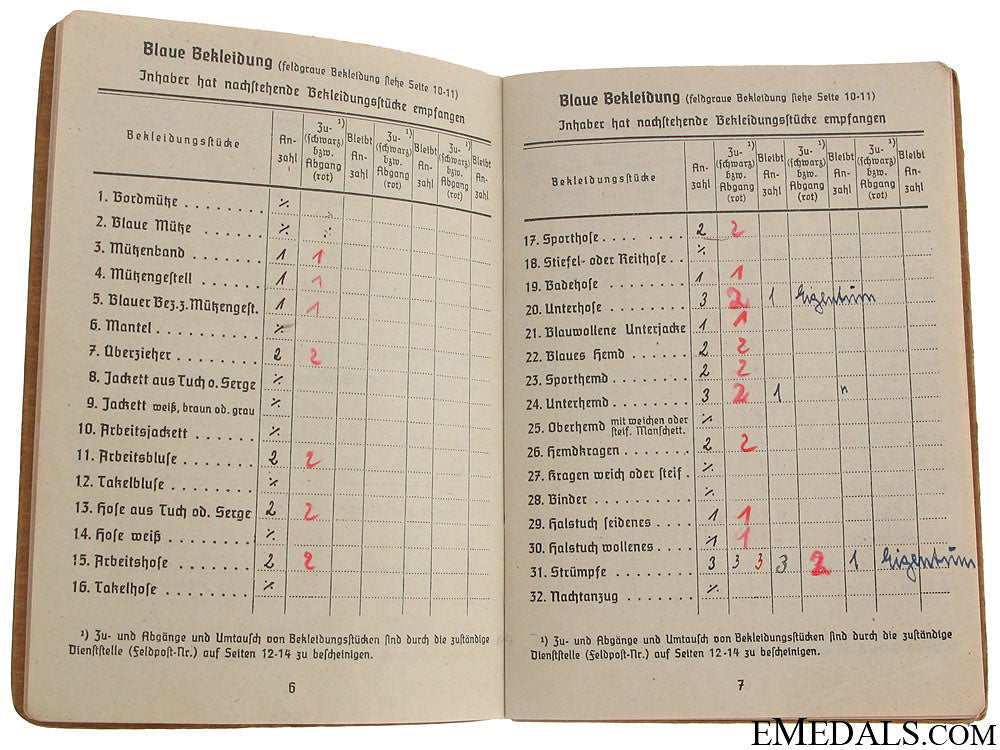 Blaue Bekleidung (feldgraue Bekleidung siehe Seite 10-11)
Inhaber hat nachstehende Bekleidungsstücke empfangen
Bekleidungsstücke An-zahl Zu-¹) (schwarz) bzw. Abgang (rot) Bleibt An-zahl Zu-¹) (schwarz) bzw. Abgang (rot) Bleibt An-zahl Zu-¹) (schwarz) bzw. Abgang (rot) Bleibt An-zahl
1. Bordmütze ........ ٪
2. Blaue Mütze ...... ٪
3. Mützenband ....... 1 1
4. Mützengestell ...... 1 1
5. Blauer Bez.z.Mützengest. 1 1
6. Mantel ........... ٪
7. Überzieher ........ 2 2
8. Jackett aus Tuch o. Serge ٪
9. Jackett weiß, braun od. grau ٪
10. Arbeitsjackett ...... ٪
11. Arbeitsbluse ....... 2 2
12. Takelbluse ........ ٪
13. Hose aus Tuch od. Serge 2 2
14. Hose weiß ........ ٪
15. Arbeitshose ....... 2 2
16. Takelhose ........ ٪
¹) Zu- und Abgänge und Umtausch von Bekleidungsstücken sind durch die zuständige
Dienststelle (Feldpost-Nr.) auf Seiten 12-14 zu bescheinigen.
6
Blaue Bekleidung (feldgraue Bekleidung siehe Seite 10-11)
Inhaber hat nachstehende Bekleidungsstücke empfangen
Bekleidungsstücke An-zahl Zu-¹) (schwarz) bzw. Abgang (rot) Bleibt An-zahl Zu-¹) (schwarz) bzw. Abgang (rot) Bleibt An-zahl Zu-¹) (schwarz) bzw. Abgang (rot) Bleibt An-zahl
17. Sporthose ......... 2 2
18. Stiefel- oder Reithose .. ٪
19. Badehose ......... 1 1
20. Unterhose ........ 3 2 1 Eigentum
21. Blauwollene Unterjacke 1 1
22. Blaues Hemd ...... 2 2
23. Sporthemd ........ 2 2
24. Unterhemd ........ 3 2 1 "
25. Oberhemd mit weichen oder steif. Manschett. ٪
26. Hemdkragen ....... 2 2
27. Kragen weich oder steif . ٪
28. Binder .......... ٪
29. Halstuch seidenes .... 1 1
30. Halstuch wollenes .... 1 1
31. Strümpfe ......... 3 3 3 3 2 1 Eigentum
32. Nachtanzug ....... ٪
¹) Zu- und Abgänge und Umtausch von Bekleidungsstücken sind durch die zuständige
Dienststelle (Feldpost-Nr.) auf Seiten 12-14 zu bescheinigen.
7
EMEDALS.COM